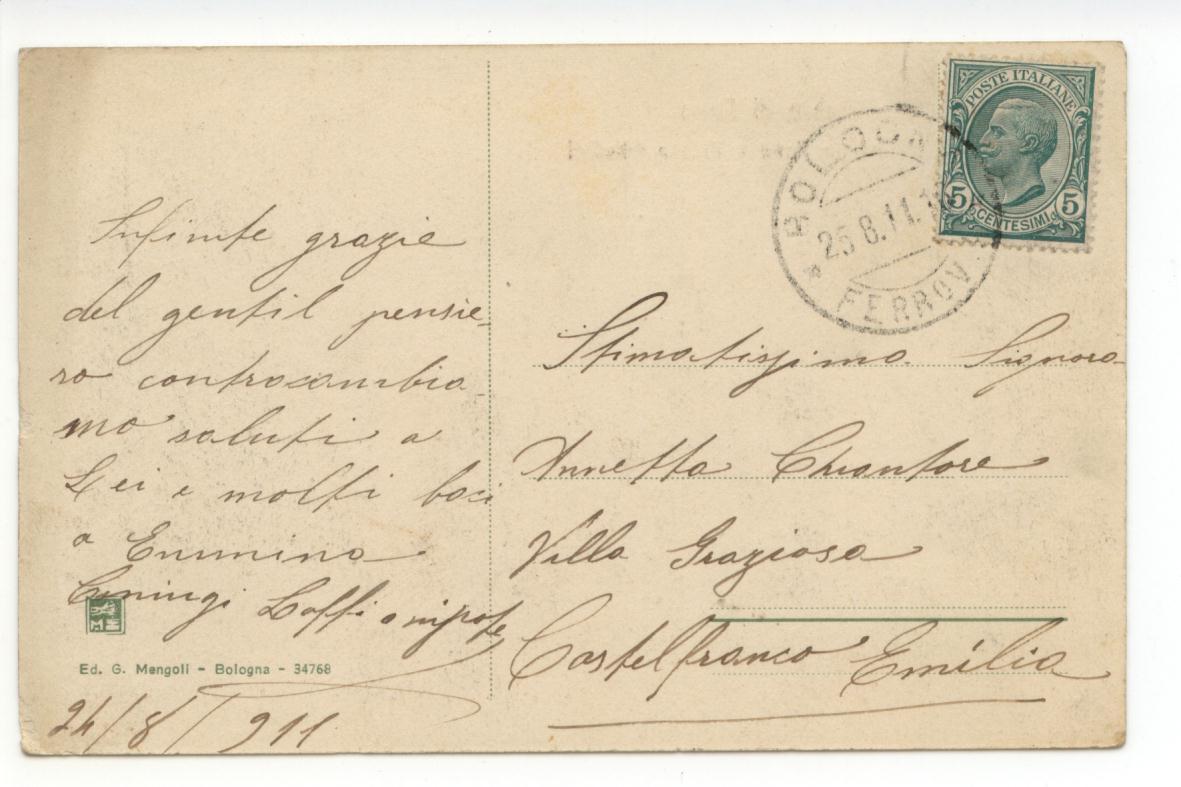 Infinite grazie
del gentil pensie-
ro contracambia-
mo saluti a
Lei e molti baci
a Ermmina
Loffi e nipote
Ed. G. Mengoli - Bologna - 34768
24/8/911
POSTE ITALIANE
5 CENTESIMI 5
BOLOGNA
25.8.11.1
FERROV.
Stimatissima Signora
Annetta Chiantore
Villa Graziosa
Castelfranco Emilia